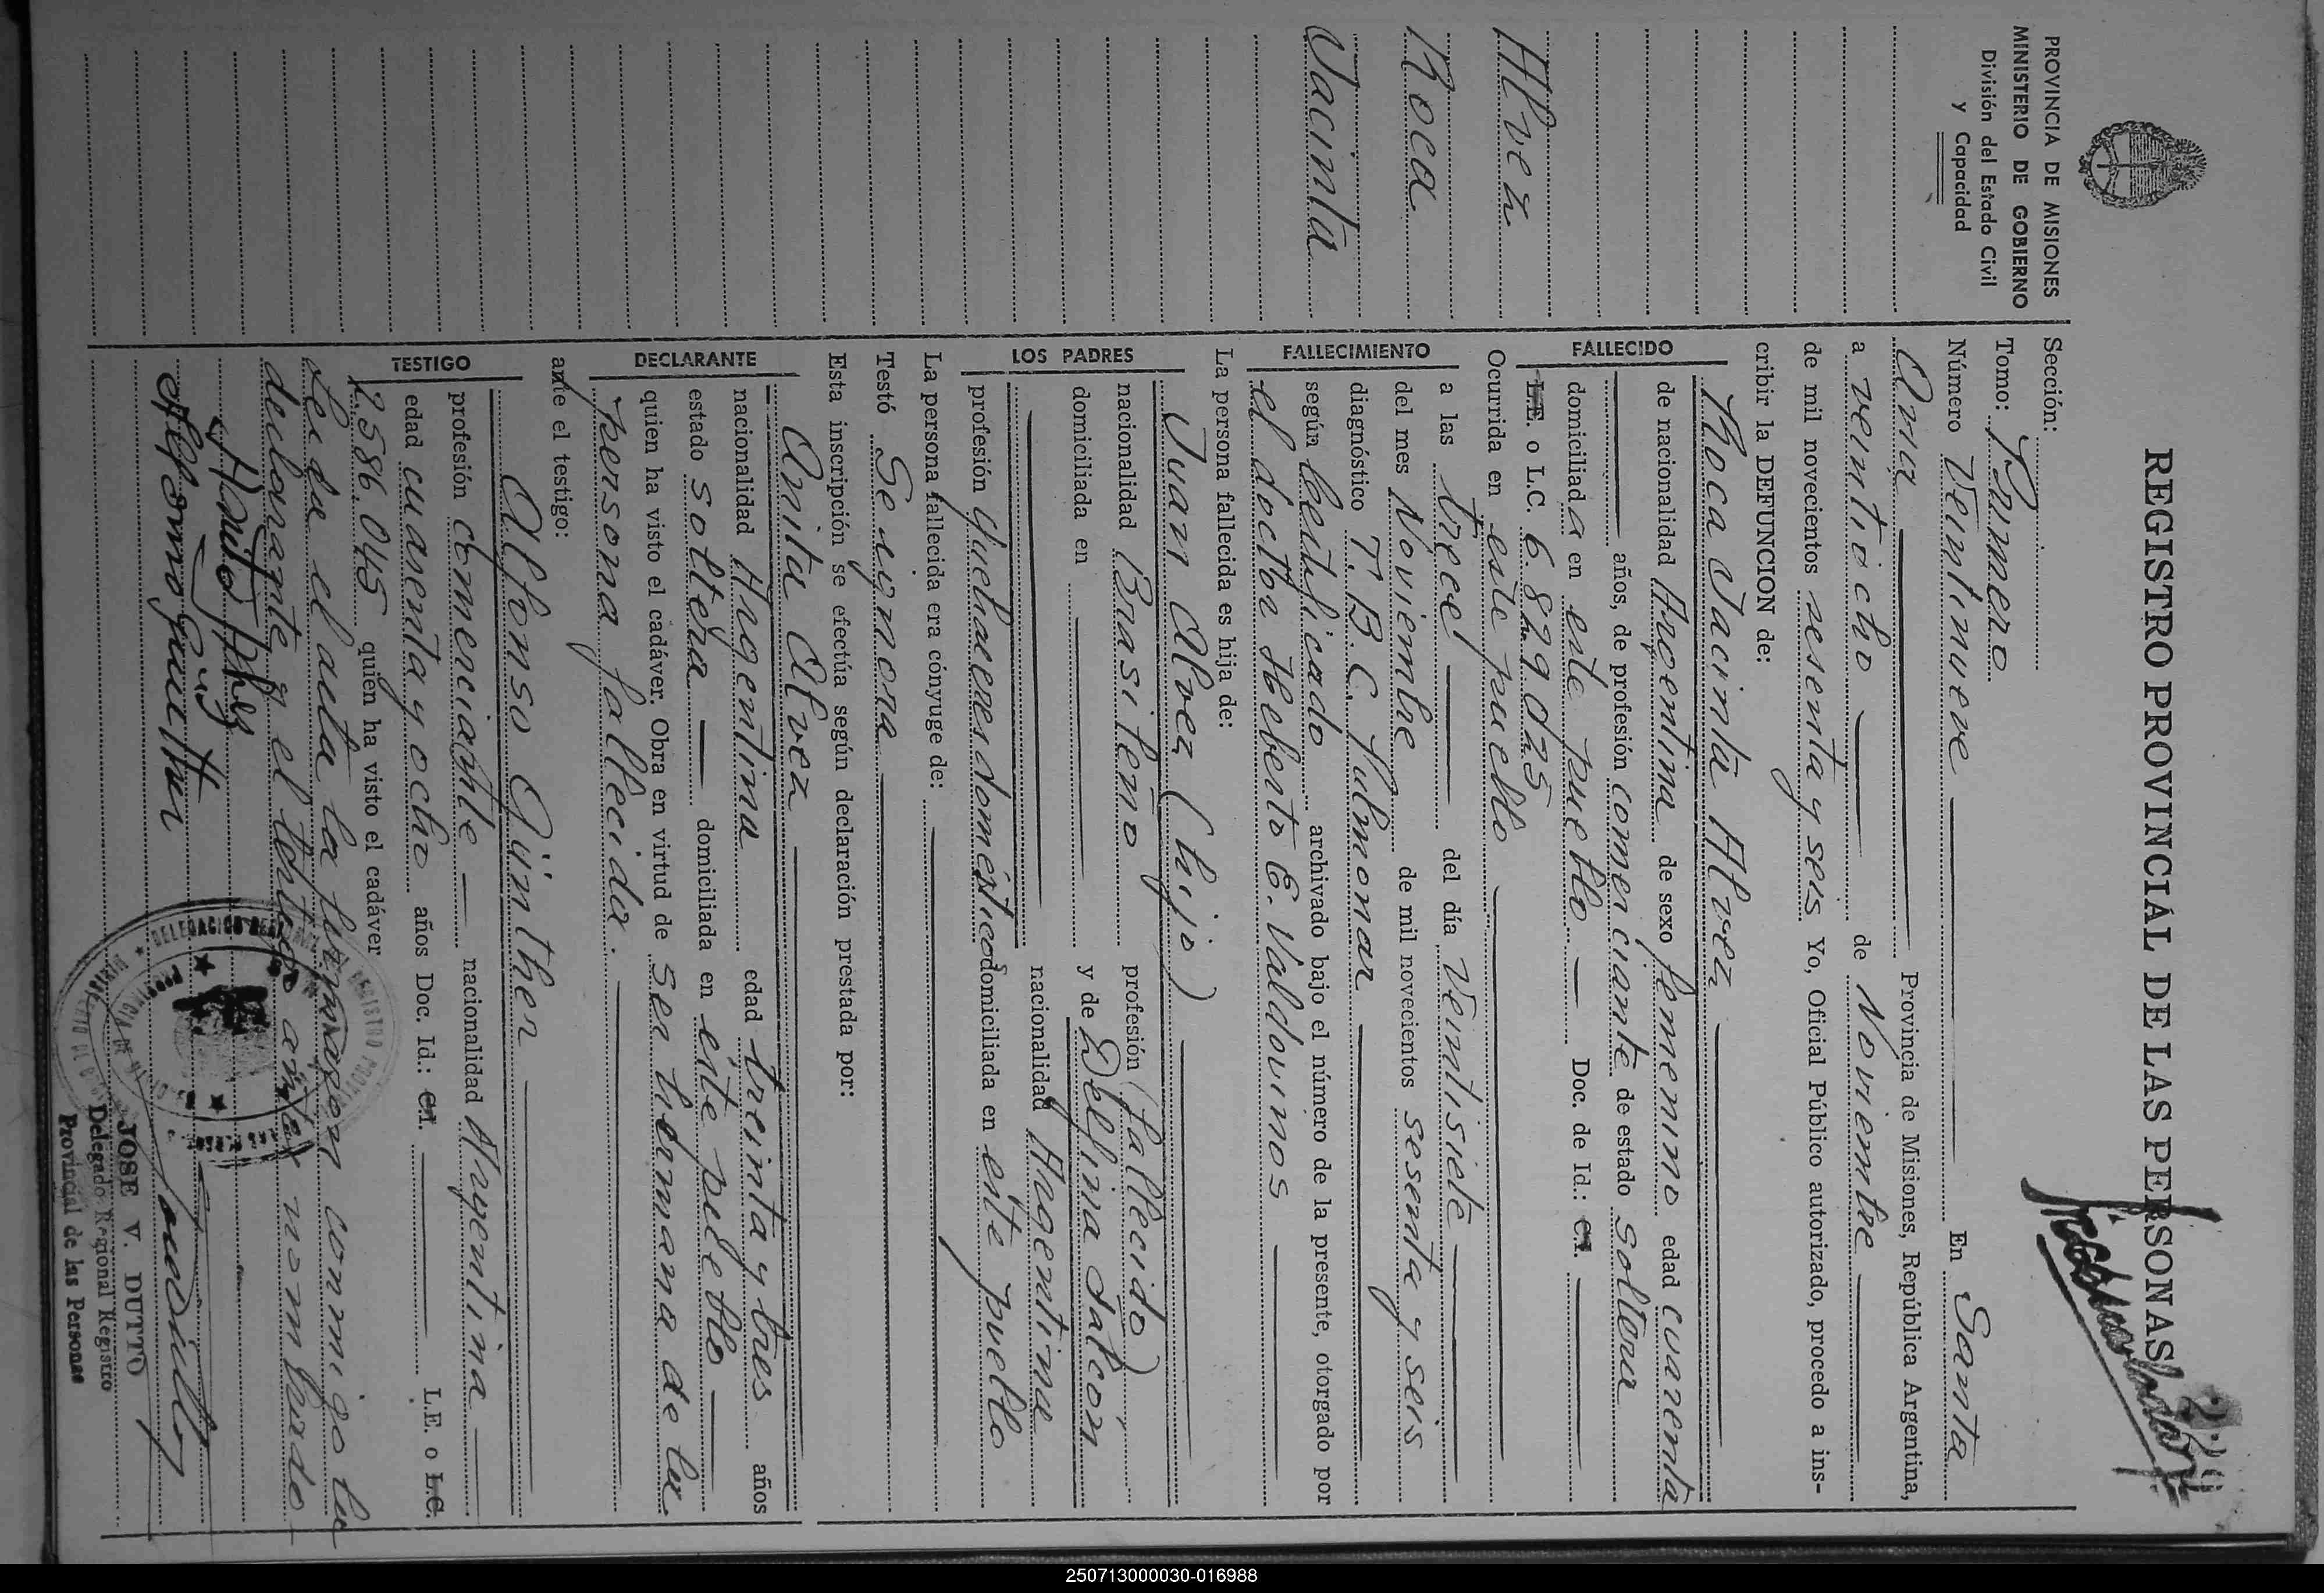 REGISTRO PROVINCIAL DE LAS PERSONAS
PROVINCIA DE MISIONES
MINISTERIO DE GOBIERNO
División del Estado Civil
y Capacidad
Alvez
Roca
Jacinta
Sección:
Tomo: Primero
Número Veintinueve En Santa
Ana Provincia de Misiones, República Argentina,
a veintiocho de Noviembre
de mil novecientos sesenta y seis Yo, Oficial Público autorizado, procedo a ins-
cribir la DEFUNCION de:
FALLECIDO
Roca Jacinta Alvez
de nacionalidad Argentina de sexo femenino edad cuarenta
años, de profesión comerciante de estado soltera
domiciliada en este pueblo Doc. de Id.: C.I.
L.E. o L.C. 6.829.025
FALLECIMIENTO
Ocurrida en este pueblo
a las trece del día Veintisiete
del mes Noviembre de mil novecientos sesenta y seis
diagnóstico T.B.C. Pulmonar
según certificado archivado bajo el número de la presente, otorgado por
el doctor Heberto E. Valdovinos
La persona fallecida es hija de:
LOS PADRES
Juan Alvez (hijo)
nacionalidad Brasileño profesión (fallecido)
domiciliada en y de Delfina Falcón
nacionalidad Argentina
profesión quehaceres domésticos domiciliada en este pueblo
La persona fallecida era cónyuge de:
Testó Se ignora
Esta inscripción se efectúa según declaración prestada por:
DECLARANTE
Anita Alvez
nacionalidad Argentina edad treinta y tres años
estado soltera domiciliada en éste pueblo
quien ha visto el cadáver. Obra en virtud de ser hermana de la
persona fallecida.
ante el testigo:
TESTIGO
Alfonso Günther
profesión comerciante nacionalidad Argentina
edad cuarenta y ocho años Doc. Id.: C.I. L.E. o L.C.
2.586.045 quien ha visto el cadáver
Leída el acta la firmaron conmigo la
declarante y el testigo antes nombrado
Alfonso Günther
JOSE V. DUTTO
Delegado Regional Registro
Provincial de las Personas
250713000030-016988